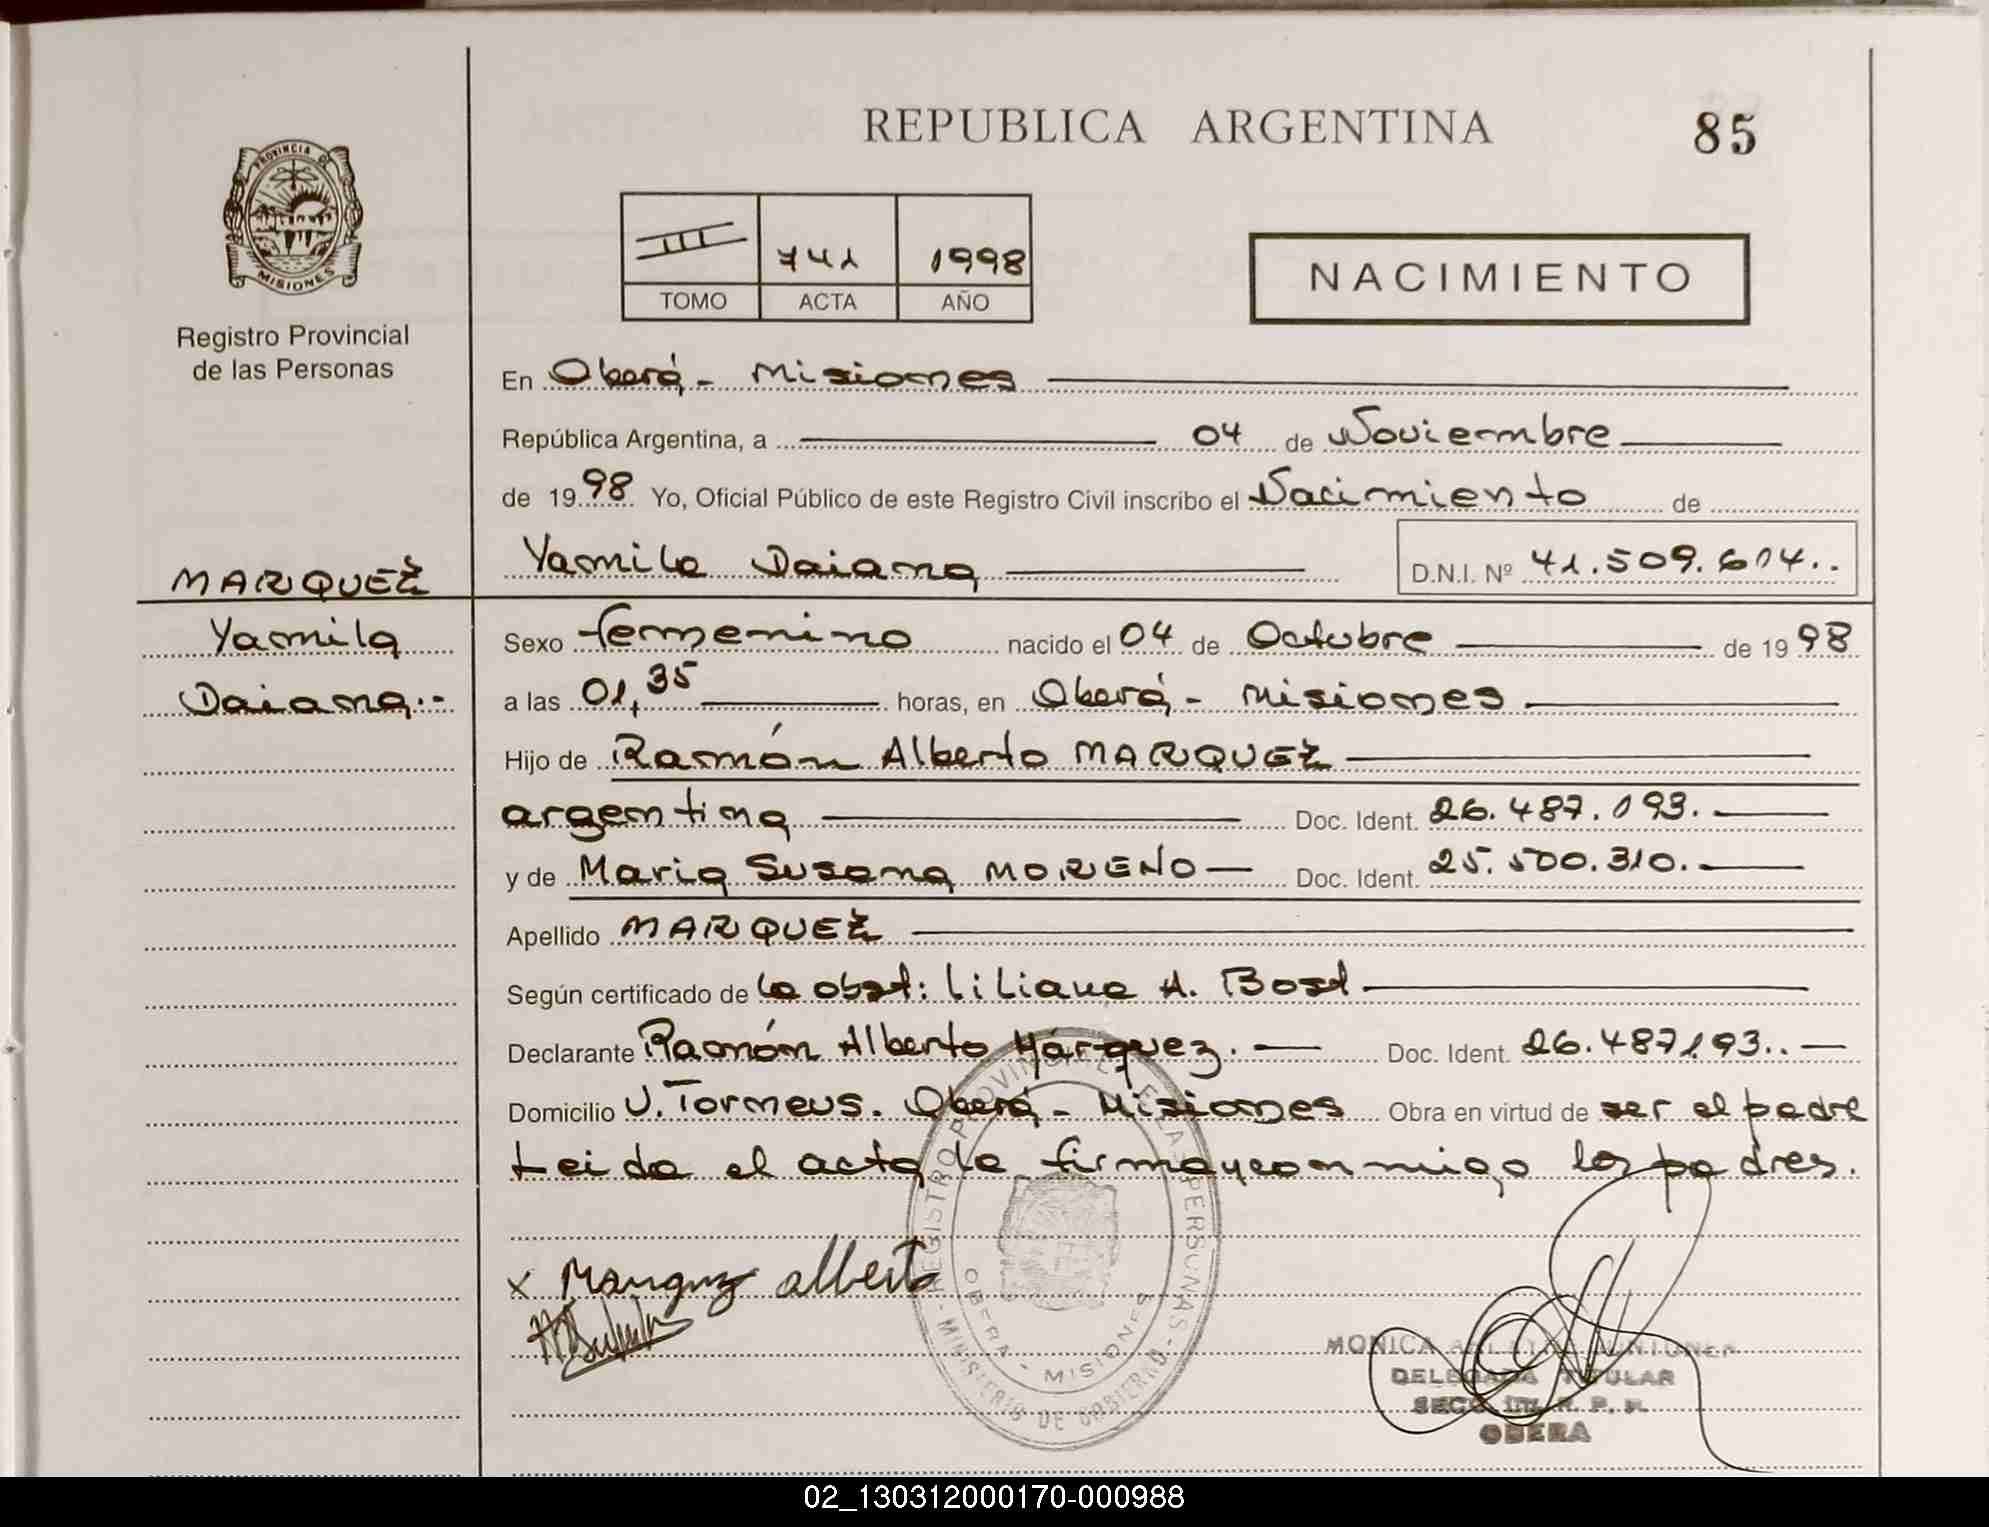 REPUBLICA ARGENTINA
85
PROVINCIA DE MISIONES
Registro Provincial
de las Personas
III 741 1998
TOMO ACTA AÑO
NACIMIENTO
En Oberá - Misiones
República Argentina, a 04 de Noviembre
de 1998 Yo, Oficial Público de este Registro Civil inscribo el Nacimiento de
Yamila Daiana D.N.I. Nº 41.509.614..
MARQUEZ
Yamila
Daiana.-
Sexo femenino nacido el 04 de Octubre de 1998
a las 01,35 horas, en Oberá - Misiones
Hijo de Ramón Alberto MARQUEZ
argentina Doc. Ident. 26.487.193.
y de Maria Susana MORENO Doc. Ident. 25.500.310.
Apellido MARQUEZ
Según certificado de la obst: Liliana A. Bost
Declarante Ramón Alberto Márquez. Doc. Ident. 26.487193..
Domicilio V. Torneus. Oberá - Misiones Obra en virtud de ser el padre
Leida el acta la firmayconmigo los padres.
x Marquez alberto
REGISTRO PROVINCIAL DE LAS PERSONAS - MINISTERIO DE GOBIERNO -
OBERA - MISIONES
MONICA
DELEGADA TITULAR
SECC. R. P. P.
OBERA
02_130312000170-000988